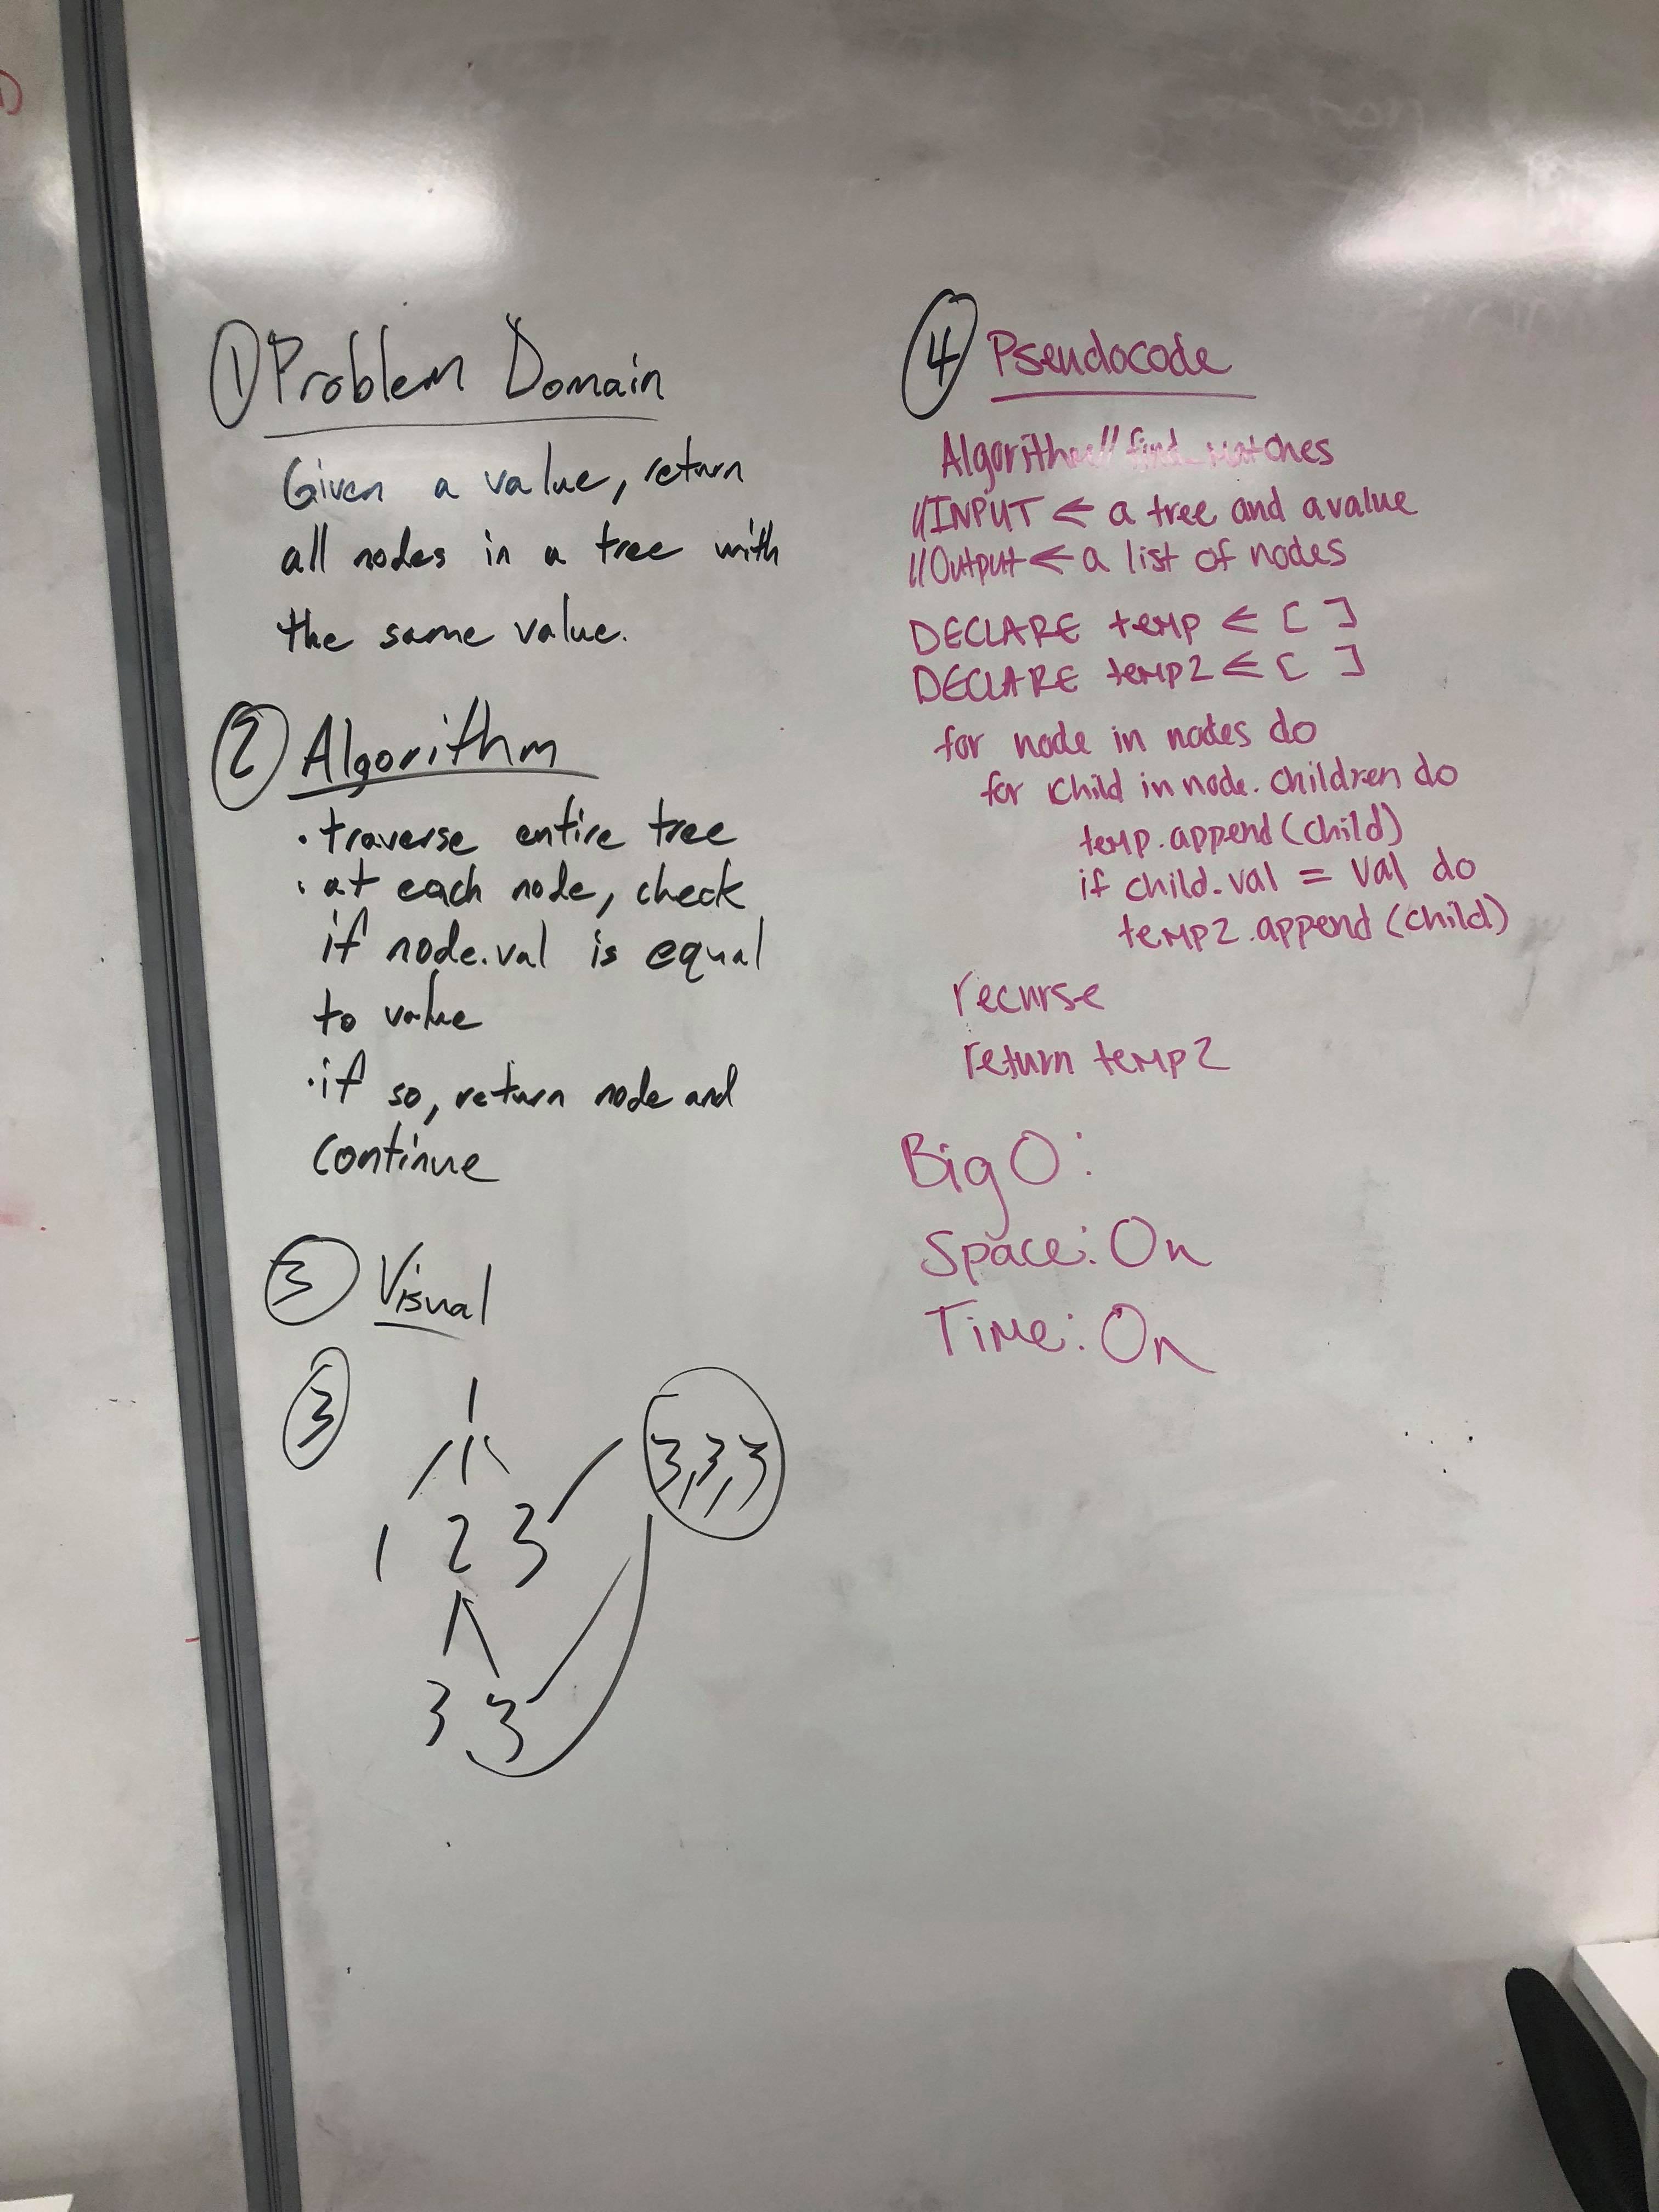 ① Problem Domain
Given a value, return
all nodes in a tree with
the same value.
② Algorithm
· traverse entire tree
· at each node, check
if node.val is equal
to value
· if so, return node and
continue
③ Visual
③
1
1 2 3
3,3,3
3 3
④ Pseudocode
Algorithm // find_matches
// INPUT ← a tree and a value
// Output ← a list of nodes
DECLARE temp ← [ ]
DECLARE temp2 ← [ ]
for node in nodes do
for child in node.children do
temp.append(child)
if child.val = val do
temp2.append(child)
recurse
return temp2
Big O:
Space: On
Time: On